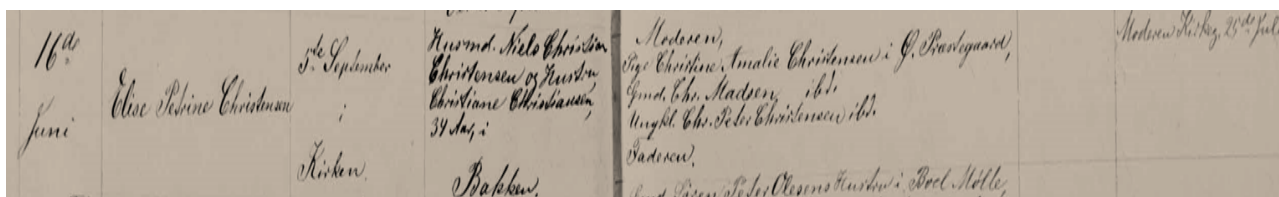 16de
Juni
Elise Petrine Christensen
5te September
i
Kirken.
Husmd. Niels Christian
Christensen og Hustru
Christiane Christiansen,
34 Aar, i
Bakken.
Moderen,
Pige Christine Amalie Christensen i Ø. Præstegaard,
Gmd. Chr. Madsen ibd.
Ungkl. Chr. Peter Christensen ibd.
Faderen.
Gmd. Sören Peter Olesens Hustru i Boel Mølle,
Moderen Kirkeg. 25de Juli